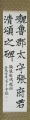 魏魯郡太守張府君
清頌之碑